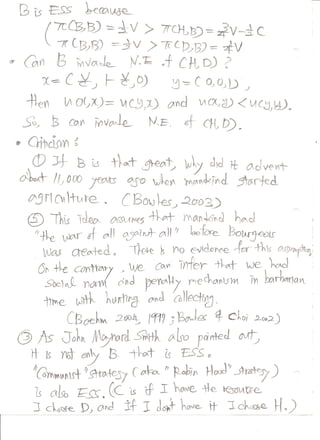 B is ESS because
π(B,B) = ½V > π(H,B) = ¾V - ¼C
π(B,B) = ½V > π(D,B) = ¼V
• Can B invade N.E. of (H,D)?
x = ( V/C, 1 - V/C, 0) y = (0,0,1),
then u(x,x) = u(y,x) and u(x,y) < u(y,y).
So, B can invade N.E. of (H,D).
• Criticism:
① If B is that great, why did it advent
about 11,000 years ago when mankind started
agriculture. (Bowles, 2003)
② This idea assumes that mankind had
"the war of all against all" before Bourgeois
was created. There is no evidence for this assumption.
On the contrary, we can infer that we had
social norm and penalty mechanism in barbarian
time with hunting and collecting.
(Boehm 2000, 1999; Bowles & Choi 2002)
③ As John Maynard Smith also pointed out,
it is not only B that is ESS.
"Communist" strategy (aka "Robin Hood" strategy)
is also ESS. (C is if I have the resource
I choose D, and if I don't have it I choose H.)